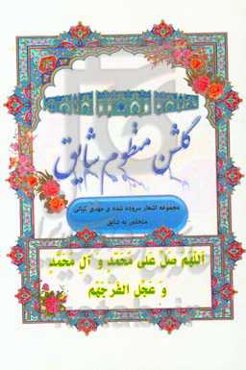 گلشن منظوم شایق
مجموعه اشعار سروده شده ی مهدی کیانی
متخلص به شایق
اَللّهُمَّ صَلِّ عَلی مُحَمَّدٍ وَ آلِ مُحَمَّدٍ
وَ عَجِّل الفَرَجَهُم